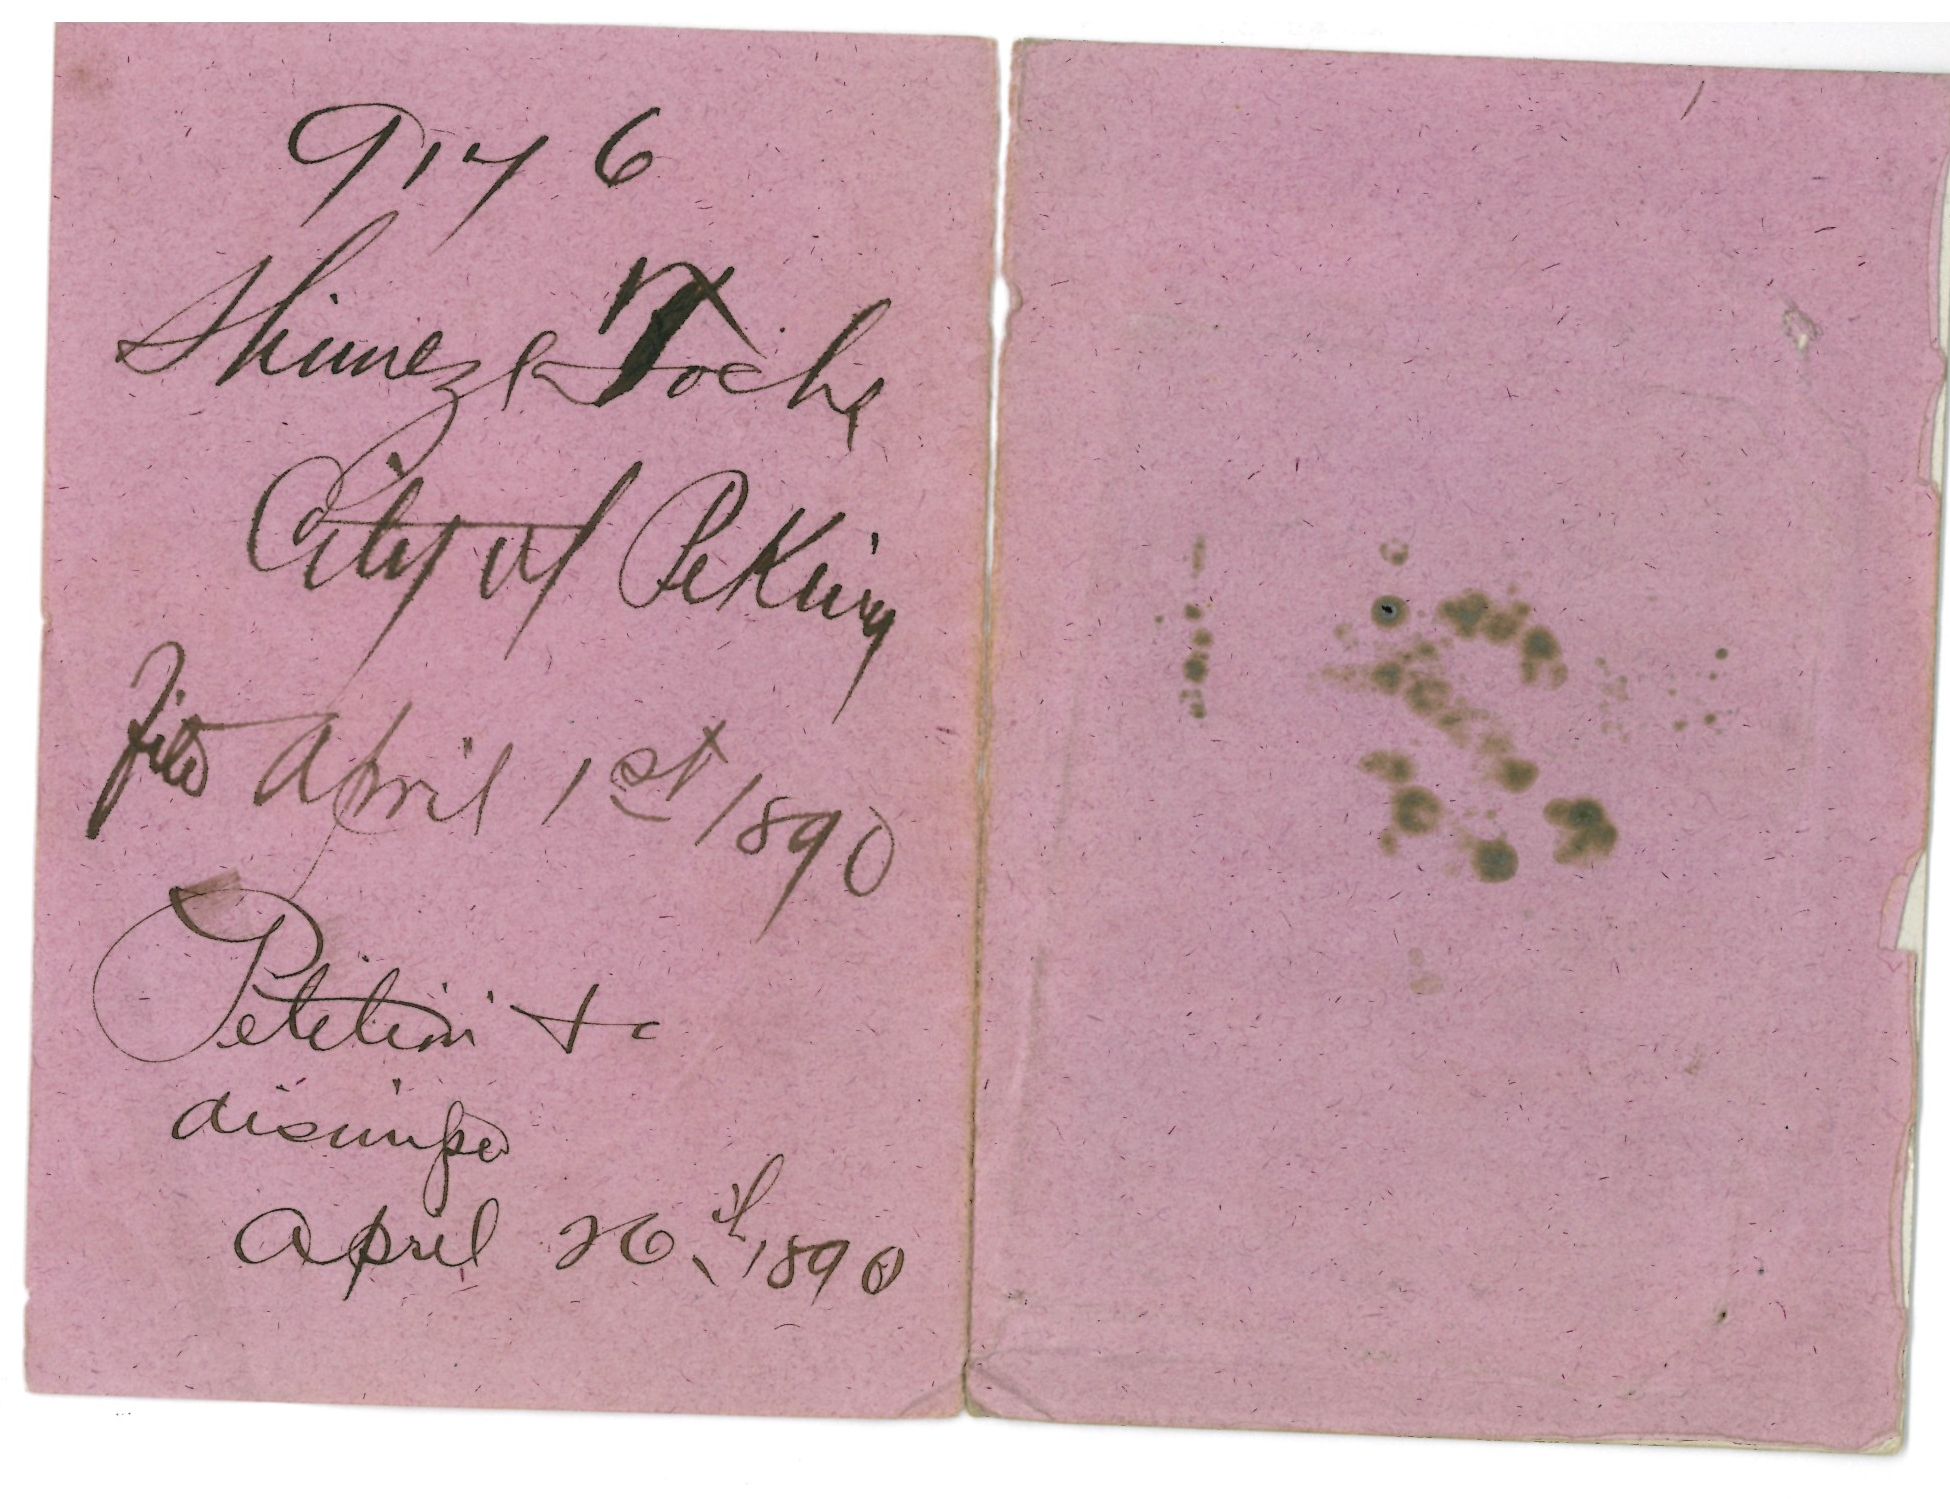 9176
Shimez Tocha
City of Peking
Filed April 1st 1890
Petition to
dismiss
April 26th 1890